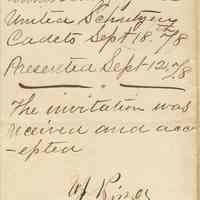 United Schutzen
Cadets Sept 18th /78
Presented Sept 12th /78
The invitation was
received and acc-
-epted
W